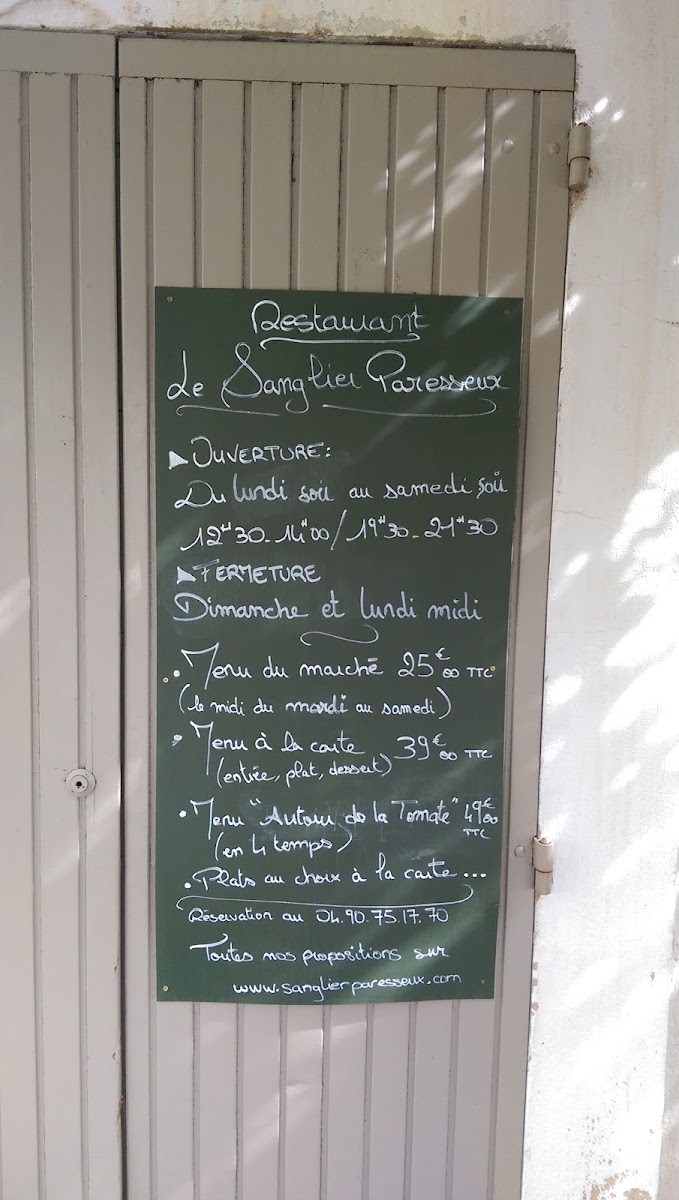 Restaurant
Le Sanglier Paresseux
OUVERTURE:
Du lundi soir au samedi soir
12H30-14H00/19H30-21H30
FERMETURE
Dimanche et lundi midi
• Menu du marché 25€00 TTC
(le midi du mardi au samedi)
• Menu à la carte 39€00 TTC
(entrée, plat, dessert)
• Menu "Autour de la Tomate" 49€00
TTC
(en 4 temps)
• Plats au choix à la carte...
Réservation au 04.90.75.17.70
Toutes nos propositions sur
www.sanglierparesseux.com